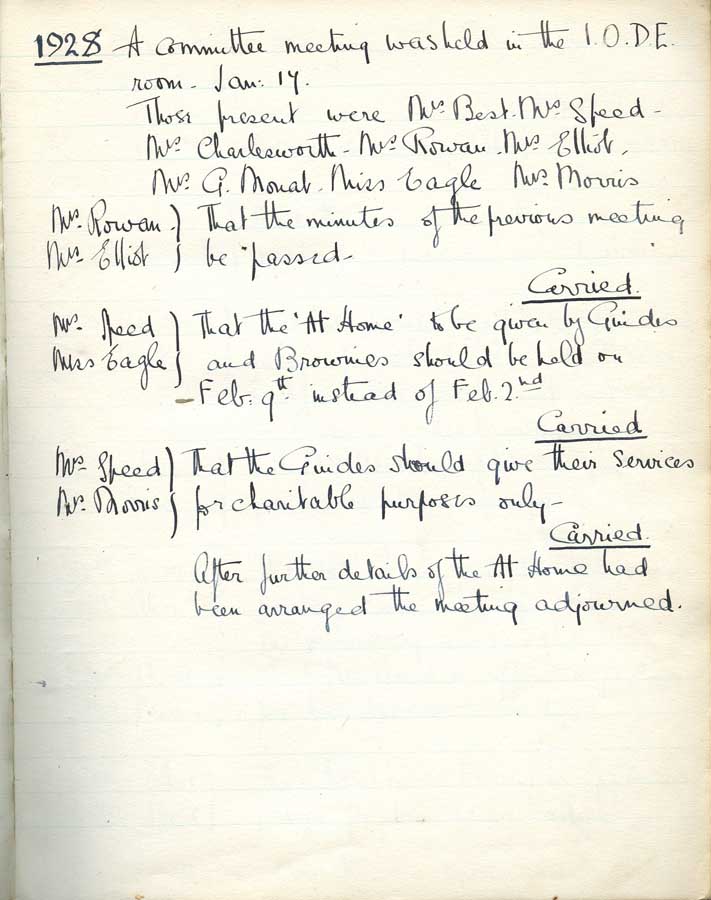 1928 A committee meeting was held in the I.O.D.E.
room - Jan: 17.
Those present were Mrs Best. Mrs Speed -
Mrs Charlesworth - Mrs Rowan. Mrs Elliot.
Mrs G. Mouat. Miss Eagle Mrs Morris
Mrs. Rowan. } That the minutes of the previous meeting
Mrs Elliot } be passed -
Carried.
Mrs. Speed } That the 'At Home' to be given by Guides
Miss Eagle } and Brownies should be held on
- Feb. 9th. instead of Feb. 2nd
Carried
Mrs Speed } That the Guides should give their services
Mrs. Morris } for charitable purposes only -
Carried.
After further details of the At Home had
been arranged the meeting adjourned.